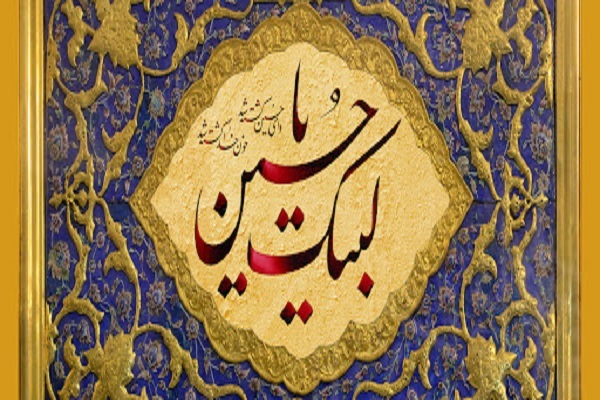 لبیک یا حسین
وای حسین کشته شد
خون خدا کشته شد